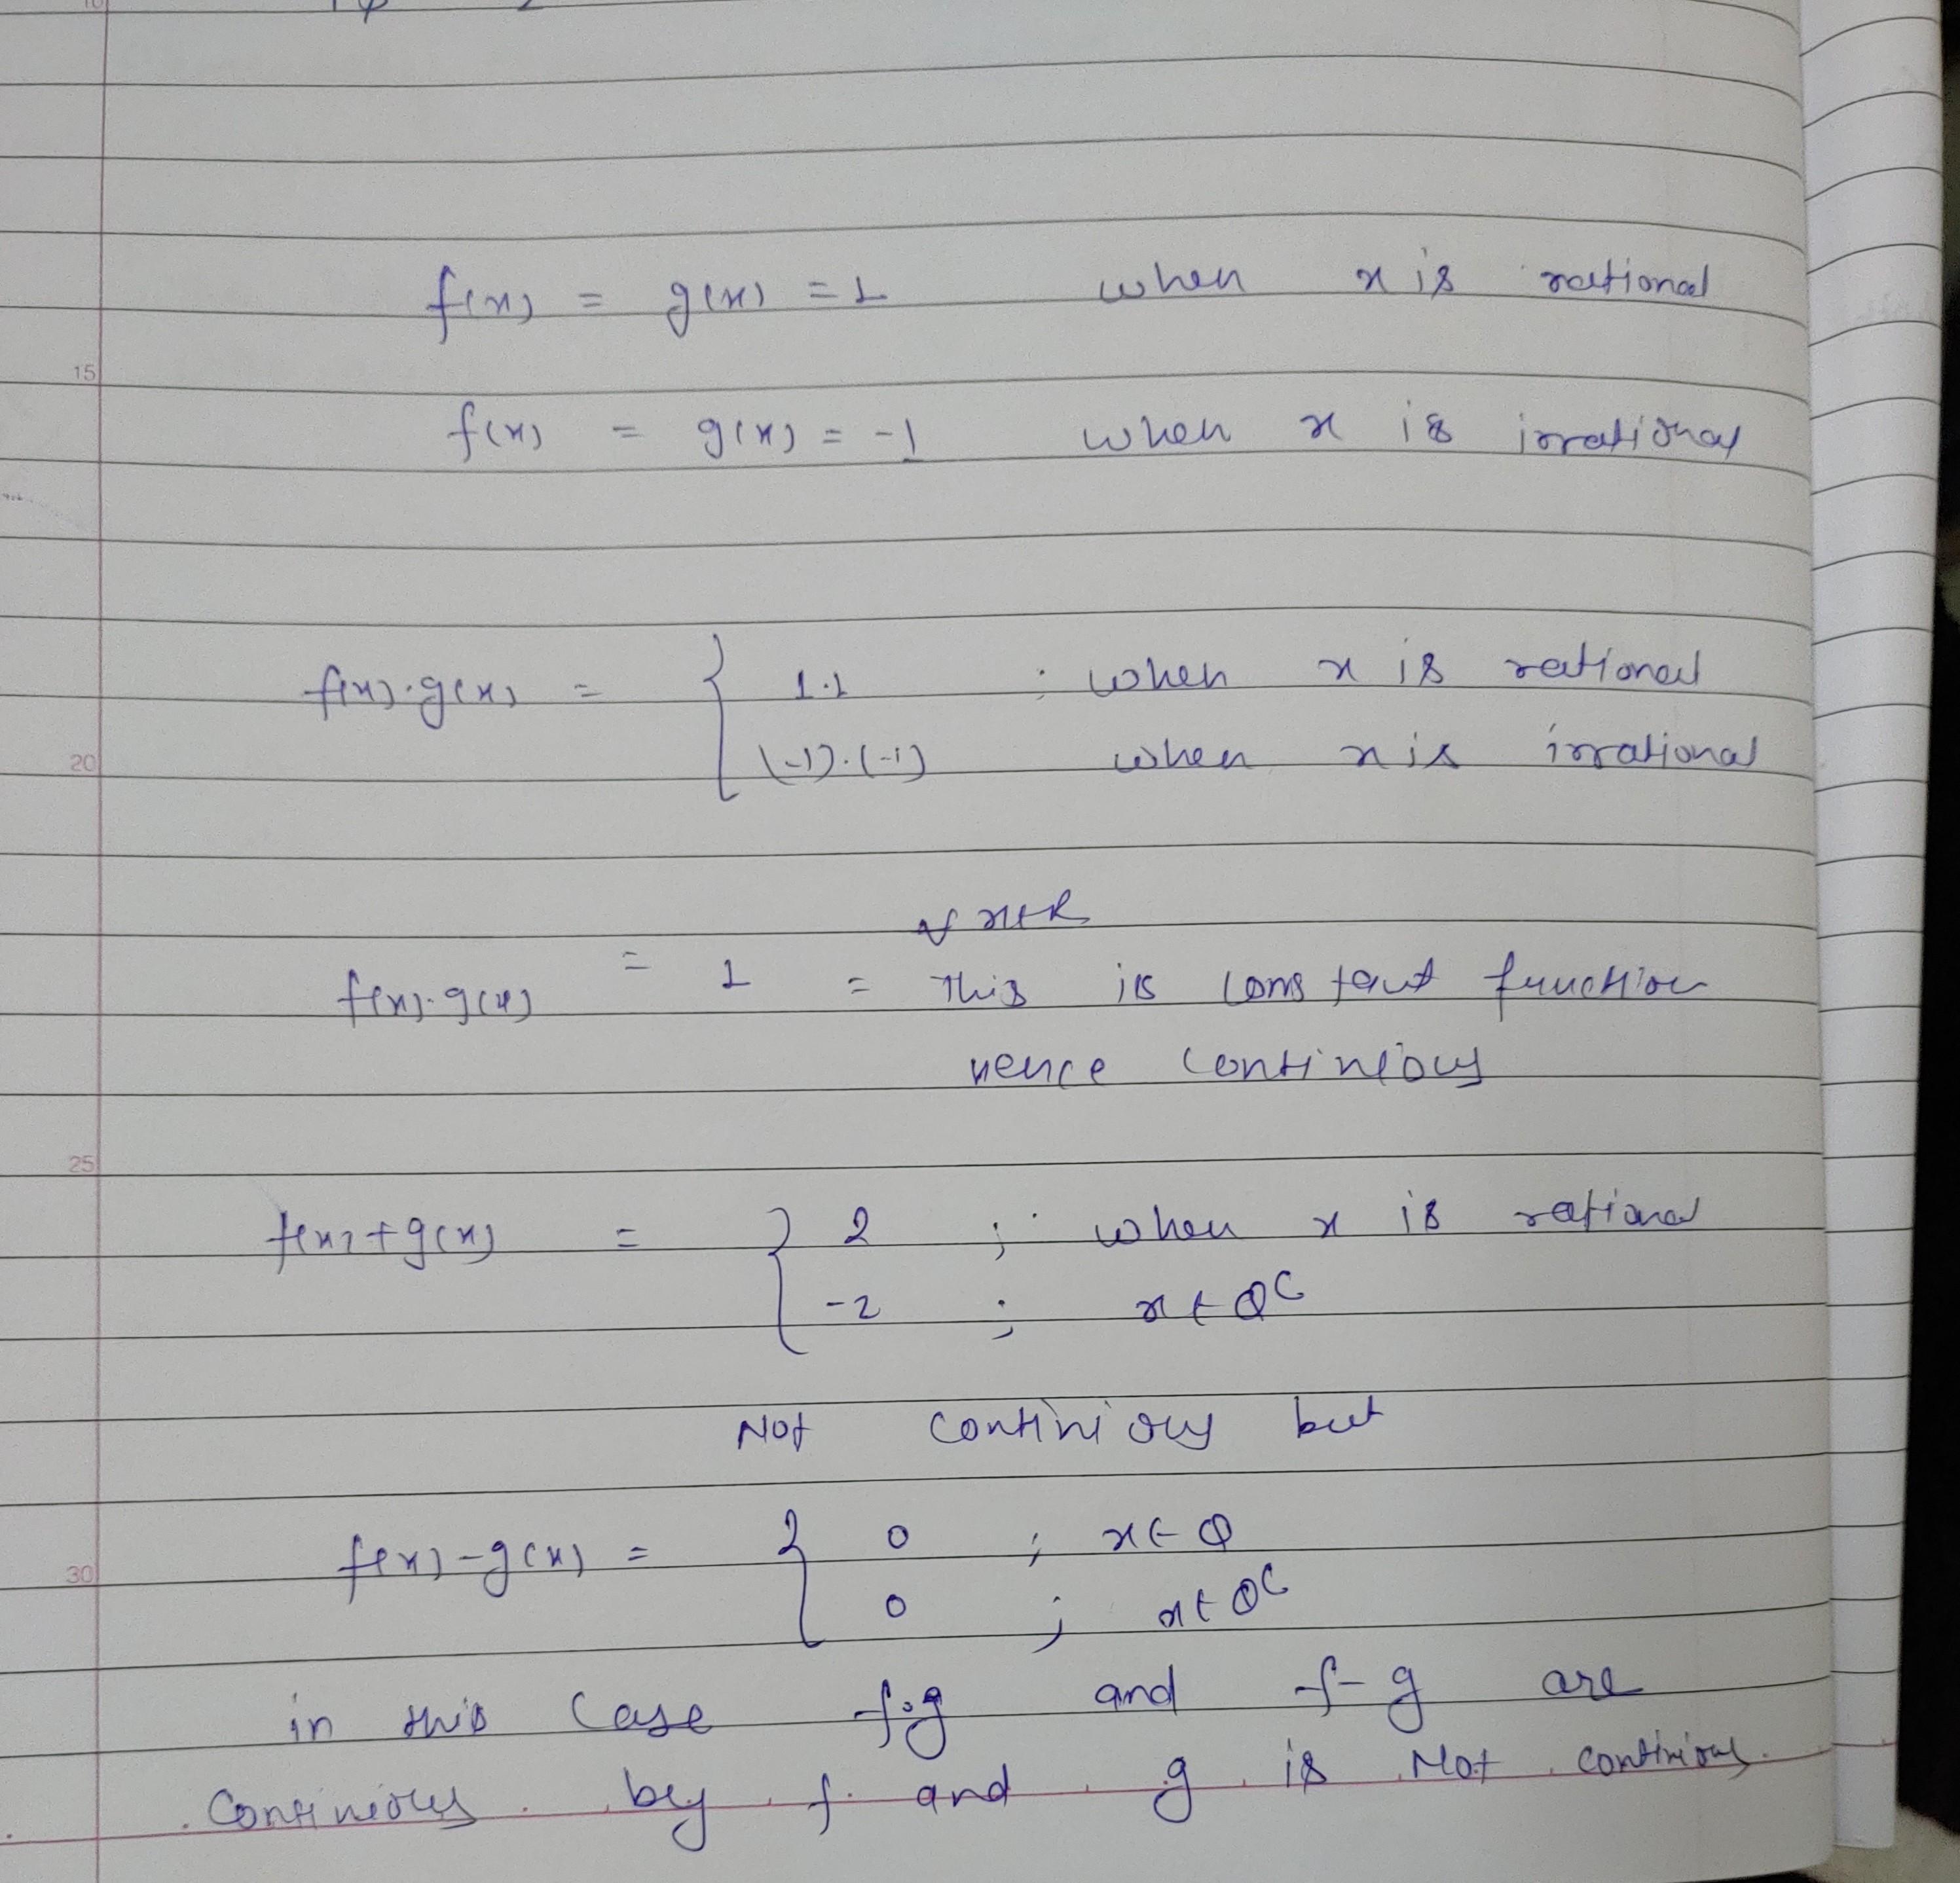 f(x) = g(x) = 1 when x is rational
15
f(x) = g(x) = -1 when x is irrational
f(x)·g(x) = { 1·1 ; when x is rational
20
(-1)·(-1) when x is irrational
∀ x∈R
f(x)·g(x) = 1 = This is constant function
hence continious
25
f(x)+g(x) = { 2 ; when x is rational
-2 ; x ∈ Q^C
Not continious but
f(x)-g(x) = { 0 ; x ∈ Q
30
0 ; x ∈ Q^C
in this case f·g and f-g are
continious by f and g is Not continious.